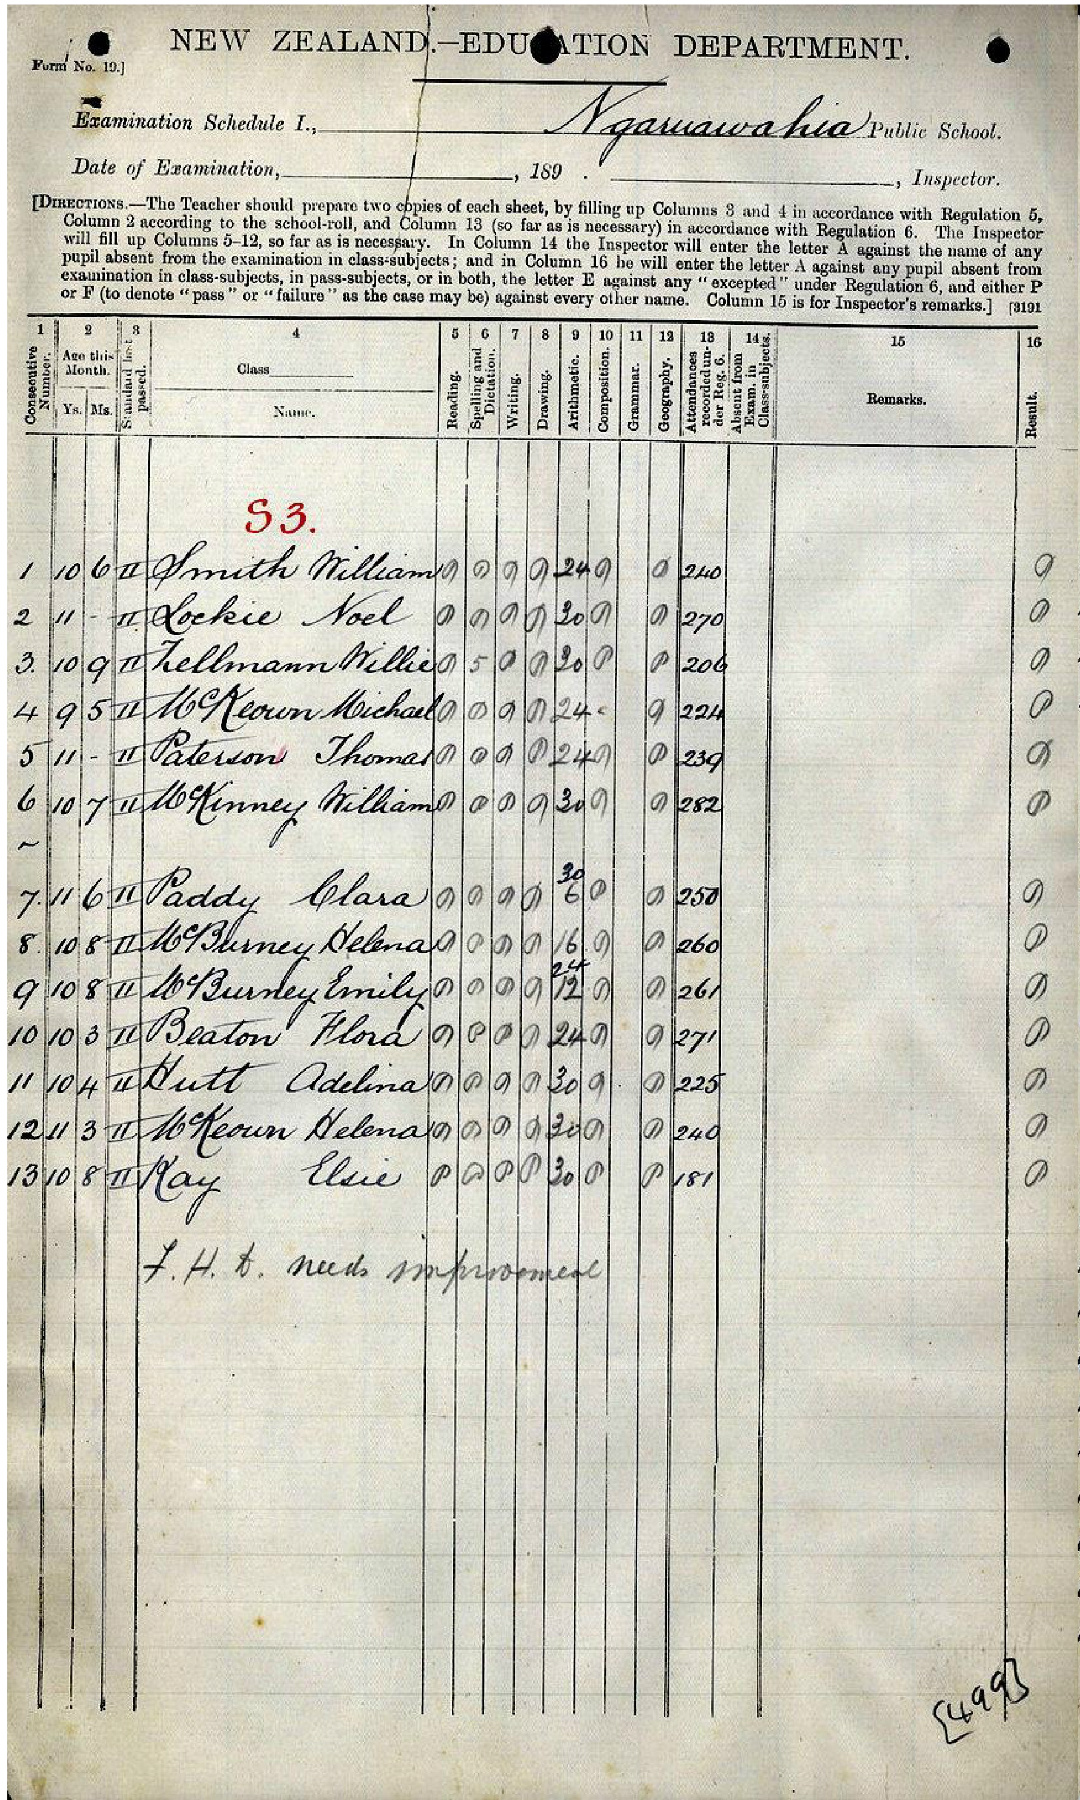 NEW ZEALAND.—EDUCATION DEPARTMENT.
Form No. 19.]
Examination Schedule I., Ngaruawahia Public School.
Date of Examination, , 189 . , Inspector.
[DIRECTIONS.—The Teacher should prepare two copies of each sheet, by filling up Columns 3 and 4 in accordance with Regulation 5,
Column 2 according to the school-roll, and Column 13 (so far as is necessary) in accordance with Regulation 6. The Inspector
will fill up Columns 5–12, so far as is necessary. In Column 14 the Inspector will enter the letter A against the name of any
pupil absent from the examination in class-subjects; and in Column 16 he will enter the letter A against any pupil absent from
examination in class-subjects, in pass-subjects, or in both, the letter E against any "excepted" under Regulation 6, and either P
or F (to denote "pass" or "failure" as the case may be) against every other name. Column 15 is for Inspector's remarks.] [3191
1 2 3 4 5 6 7 8 9 10 11 12 13 14 15 16
Consecutive Number. Age this Month. Ys. Ms. Standard last passed. Class Name. Reading. Spelling and Dictation. Writing. Drawing. Arithmetic. Composition. Grammar. Geography. Attendances recorded under Reg. 6. Absent from Exam. in Class-subjects. Remarks. Result.
S3.
1 10 6 II Smith William P P P P 24 P P 240 P
2 11 - II Lockie Noel P P P P 30 P P 270 P
3. 10 9 II Zellmann Willie P 5 P P 30 P P 206 P
4 9 5 II McKeown Michael P P P P 24 P 224 P
5 11 - II Paterson Thomas P P P P 24 P P 239 P
6 10 7 II McKinney William P P P P 30 P P 282 P
~
7. 11 6 II Paddy Clara P P P P 30 6 P P 250 P
8. 10 8 II McBurney Helena P P P P 16 P P 260 P
9 10 8 II McBurney Emily P P P P 24 12 P P 261 P
10 10 3 II Beaton Flora P P P P 24 P P 271 P
11 10 4 II Hutt Adelina P P P P 30 P P 225 P
12 11 3 II McKeown Helena P P P P 30 P P 240 P
13 10 8 II Kay Elsie P P P P 30 P P 181 P
F. H. D. needs improvement
[499]